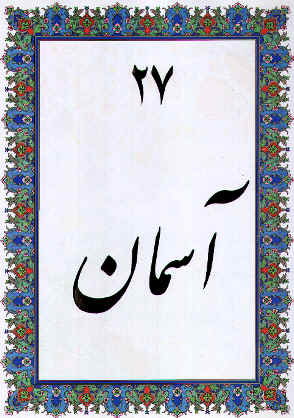 ۲۷
آسمان